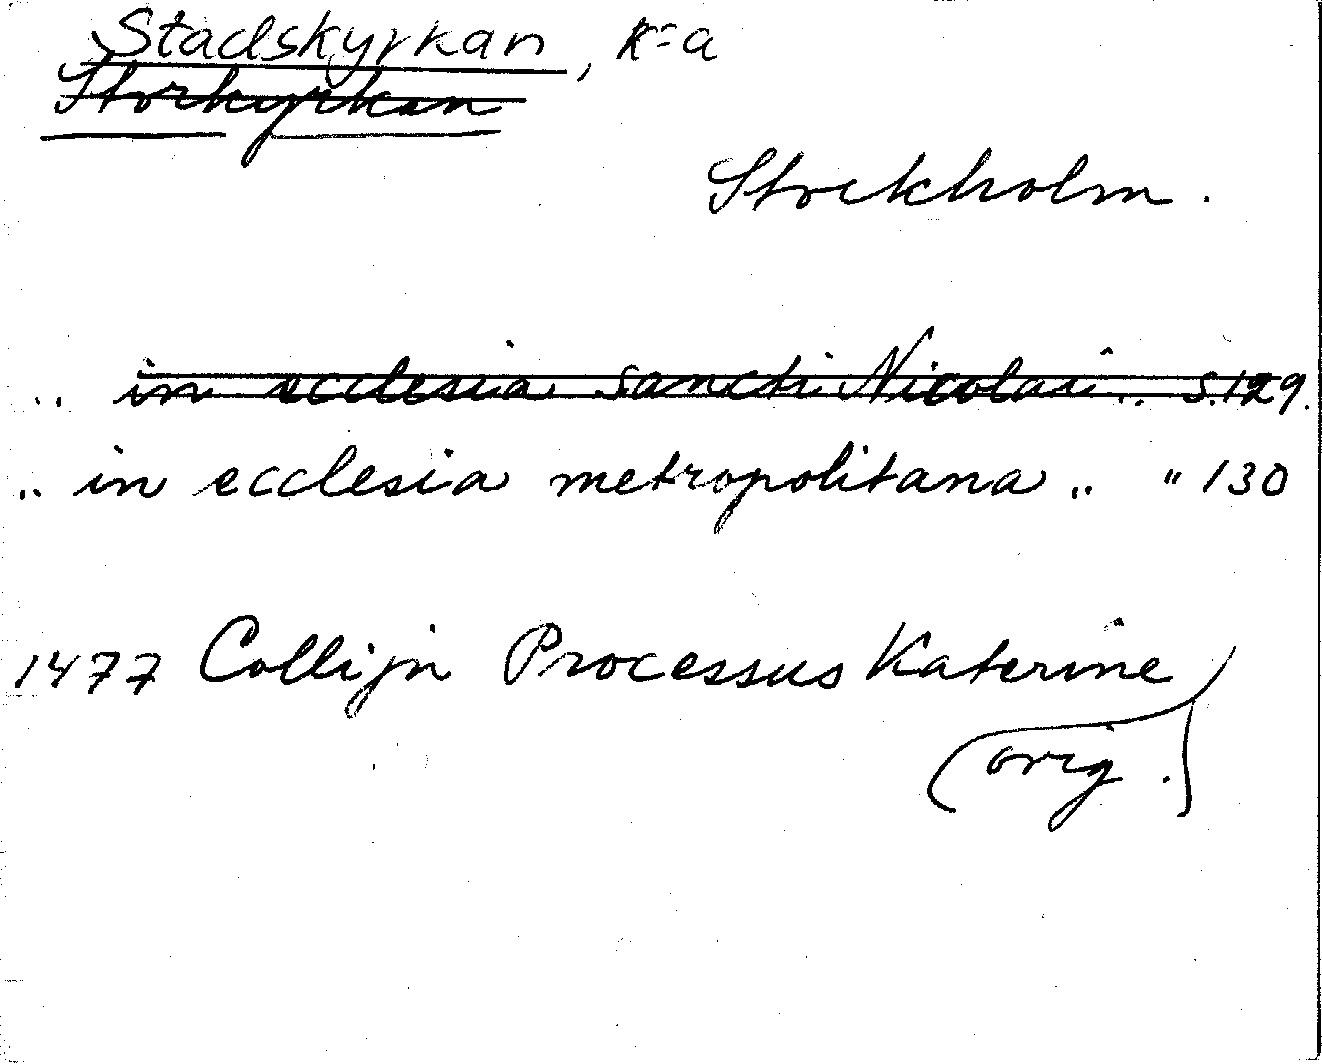 Stadskyrkan, k=a
Storkyrkan
Stockholm.
.. in ecclesia sancti Nicolai .. s. 129.
.. in ecclesia metropolitana .. " 130
1477 Collijn Processus Katerine
(orig.)